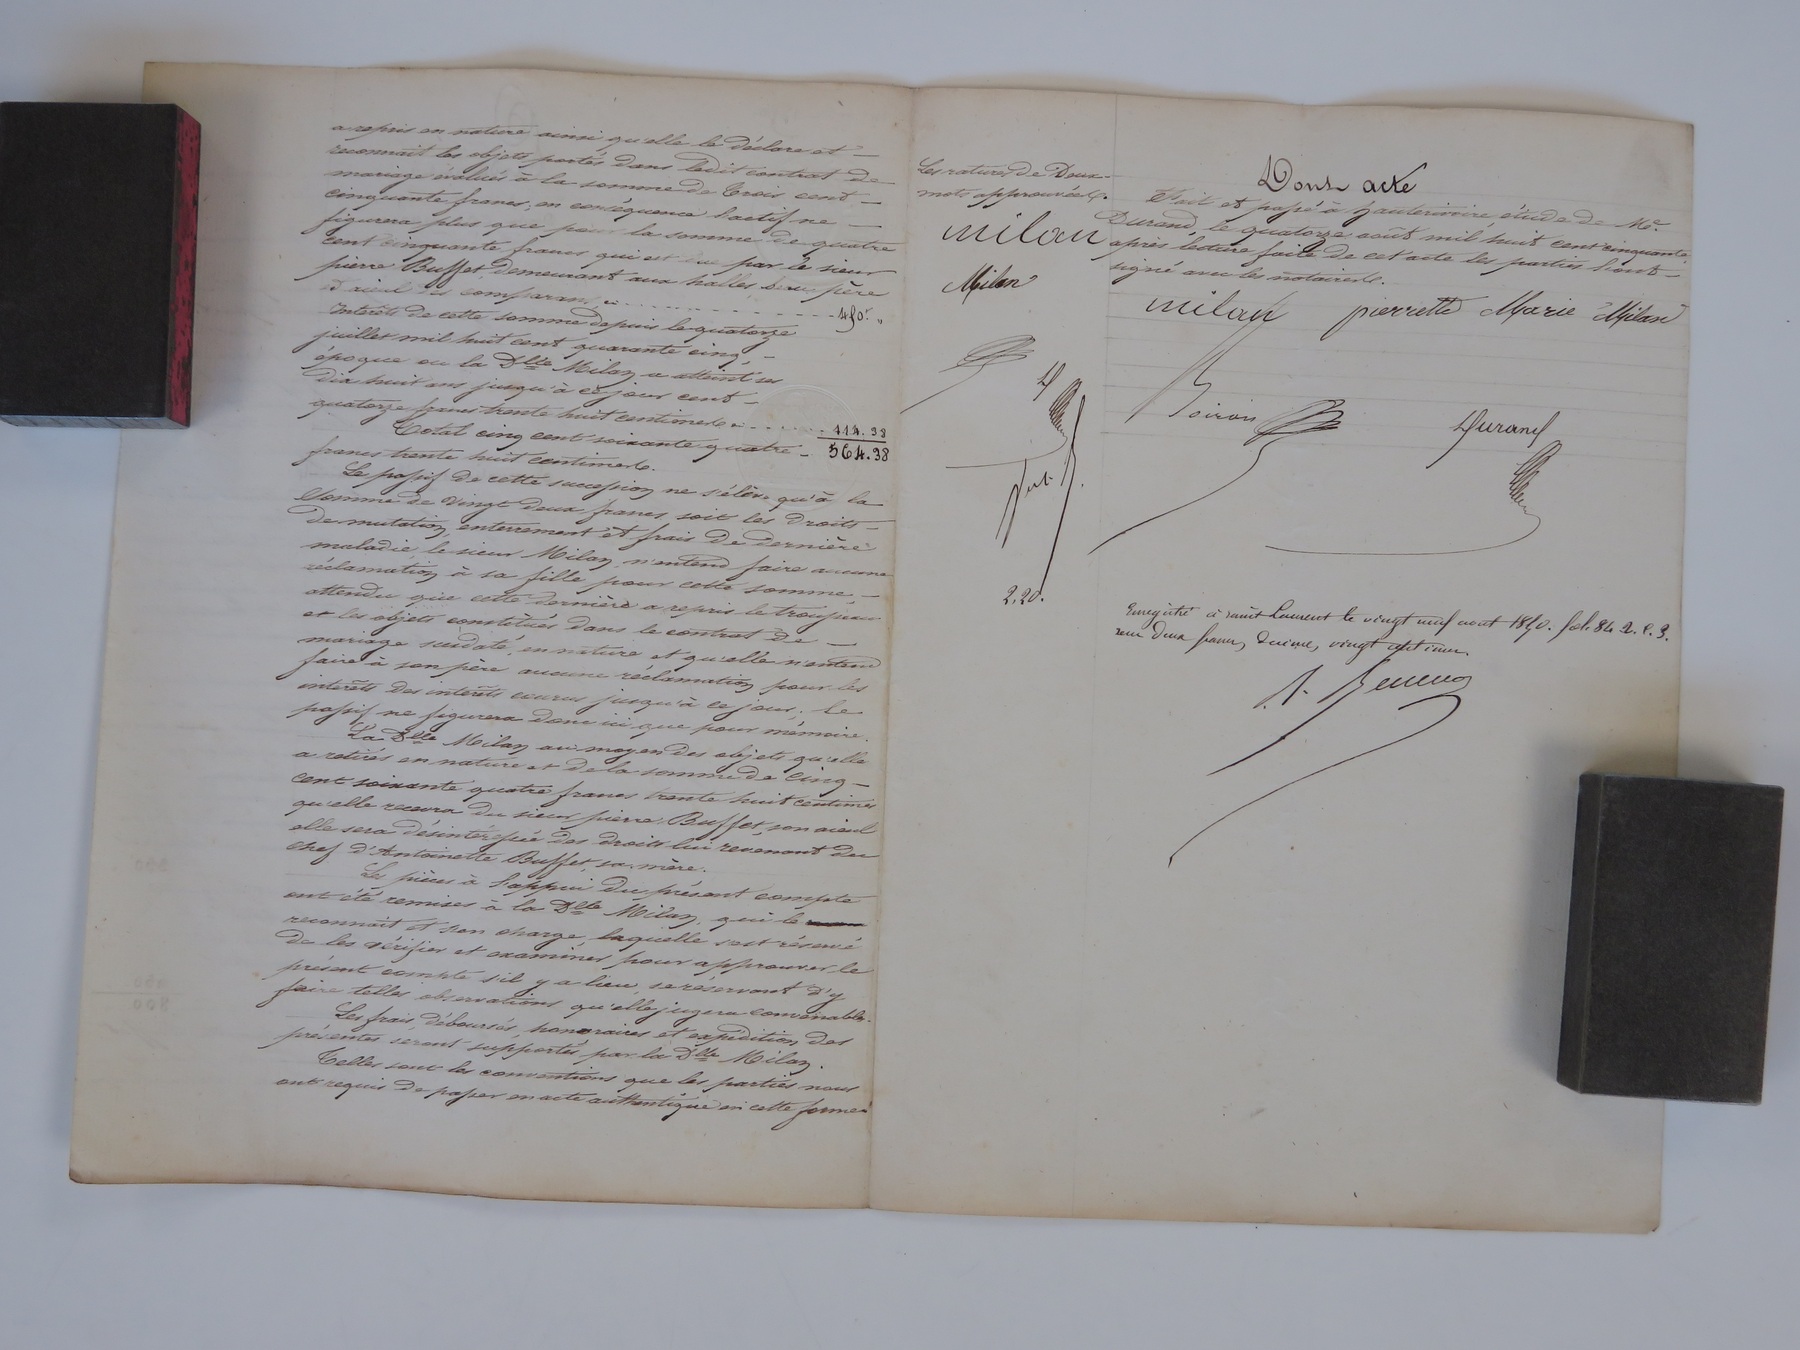 a repris en nature ainsi qu'elle le déclare et —
reconnait les objets portés dans ledit contrat de
mariage évalués à la somme de trois cent —
cinquante francs, en conséquence l'actif ne —
figurera plus que pour la somme de quatre
cent cinquante francs qui est due par le sieur
pierre Buffet demeurant aux halles, père
d'aieul des comparans . . . . . . 450. "
Intérêts de cette somme depuis le quatorze
juillet mil huit cent quarante cinq, —
époque ou la Dlle Milan a atteint ses
dix huit ans jusqu'à ce jour cent —
quatorze francs trente huit centimes . . . . . . 114.38
Total cinq cent soixante quatre — 564.38
francs trente huit centimes.
Le passif de cette succession ne s'élève qu'à la
somme de vingt deux francs soit les droits —
de mutation, enterrement et frais de dernière
maladie, le sieur Milan n'entend faire aucune
réclamation à sa fille pour cette somme, —
attendu que cette dernière a repris le trousseau
et les objets constitués dans le contrat de —
mariage susdaté, en nature et qu'elle n'entend
faire à son père aucune réclamation pour les
intérêts des intérêts courus jusqu'à ce jour, le
passif ne figurera donc ici que pour mémoire.
La Dlle Milan au moyen des objets qu'elle
a retirés en nature et de la somme de cinq —
cent soixante quatre francs trente huit centimes
qu'elle recevra du sieur pierre Buffet, son aieul
elle sera désintéressée des droits lui revenant du
chef d'Antoinette Buffet, sa mère.
Les pièces à l'appui du présent compte
ont été remises à la Dlle Milan, qui le
reconnait et s'en charge, laquelle s'est réservé
de les vérifier et examiner pour approuver le
présent compte s'il y a lieu, se réservant d'y
faire telles observations qu'elle jugera convenable.
Les frais, déboursés, honoraires et expédition des
présentes seront supportés par la Dlle Milan.
Telles sont les conventions que les parties nous
ont requis de passer en acte authentique en cette forme
Les ratures de Deux
mots approuvées.
milan
Milan
D
2,20.
Dont acte
Fait et passé à hauterivoire, étude de Me
Durand, le quatorze août mil huit cent cinquante
après lecture faite de cet acte les parties l'ont —
signé avec les notaires.
milan pierrette Marie Milan
Durand
Enregistré à saint Laurent le vingt neuf aout 1850. fol. 84 R. C. 3.
reçu deux francs, décime, vingt centimes.